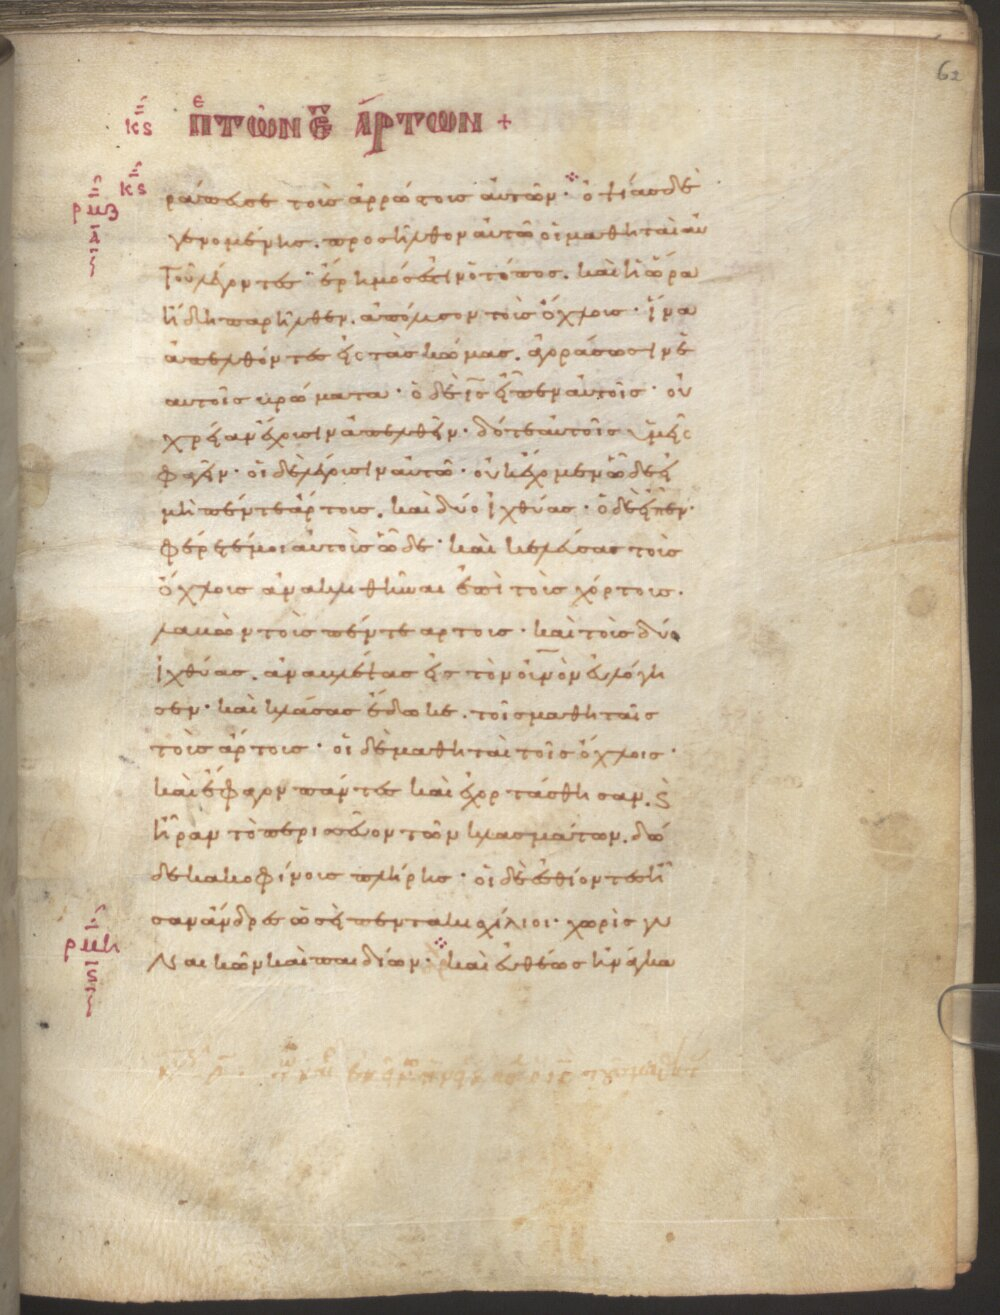 62
κϛ Πε τῶν ε̅ ἄρτων +
κϛ
ράπευσε τοὺς ἀρρώστους αὐτῶν· ὀψίας δὲ
ρμζ
γενομένης. προσῆλθον αὐτῶ οἱ μαθηταὶ αὐ
τοῦ λέγοντες· ἔρημός ἐστιν ὁ τόπος. καὶ ἡ ὥρα
ἤδη παρῆλθεν. ἀπόλυσον τοὺς ὄχλους· ἵνα
ἀπελθόντες εἰς τὰς κώμας. ἀγοράσωσιν ἑ
αυτοῖς βρώματα· ὁ δὲ ι̅ς̅ εἶπεν αὐτοῖς· οὐ
χρείαν ἔχουσιν ἀπελθεῖν· δότε αὐτοῖς ὑμεῖς
φαγεῖν· οἱ δὲ λέγουσιν αὐτῶ· οὐκ ἔχομεν ὧδε εἰ
μὴ πέντε ἄρτους. καὶ δύο ἰχθύας· ὁ δὲ εἶπεν·
φέρετέ μοι αὐτοὺς ὧδε· καὶ κελεύσας τοὺς
ὄχλους ἀνακλιθῆναι ἐπὶ τοὺς χόρτους.
λαβὼν τοὺς πέντε αρτους· καὶ τοὺς δύο
ἰχθύας. ἀναβλέψας εἰς τὸν ου̅ν̅ὸν εὐλόγη
σεν· καὶ κλάσας ἔδωκε. τοῖς μαθηταῖς
τοὺς ἄρτους· οἱ δὲ μαθηταὶ τοῖς ὄχλοις·
καὶ ἔφαγον πάντες καὶ ἐχορτάσθησαν. ϗ
ἦραν τὸ περισσεῦον τῶν κλασμάτων. δώ
δεκα κοφίνους πλήρης· οἱ δὲ ἐσθίοντες ἦ
σαν ἄνδρες ὡσεὶ πεντακισχίλιοι· χωρὶς γυ
ρμη
ναικῶν καὶ παιδίων· καὶ εὐθέως ἠνάγκα